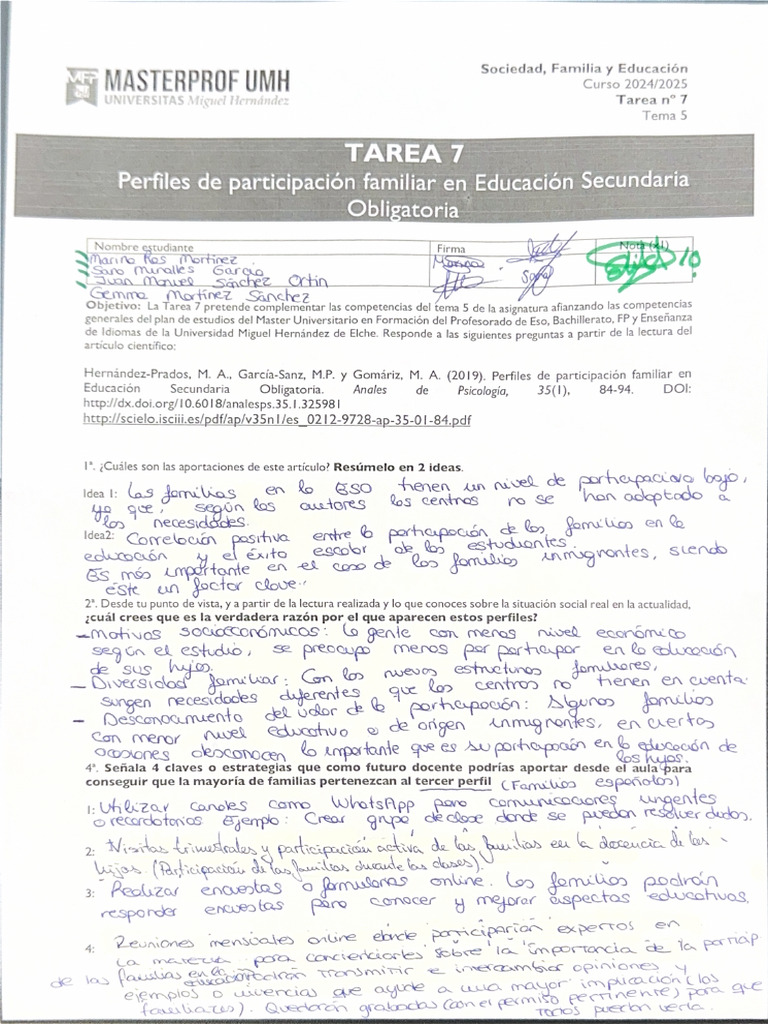 MFP MASTERPROF UMH
UNIVERSITAS Miguel Hernández
Sociedad, Familia y Educación
Curso 2024/2025
Tarea nº 7
Tema 5
TAREA 7
Perfiles de participación familiar en Educación Secundaria
Obligatoria
Nombre estudiante Firma Nota (x1)
Marina Ros Martínez 10
Sara Miralles García
Juan Manuel Sánchez Ortín
Gemma Martínez Sánchez
Objetivo: La Tarea 7 pretende complementar las competencias del tema 5 de la asignatura afianzando las competencias
generales del plan de estudios del Master Universitario en Formación del Profesorado de Eso, Bachillerato, FP y Enseñanza
de Idiomas de la Universidad Miguel Hernández de Elche. Responde a las siguientes preguntas a partir de la lectura del
artículo científico:
Hernández-Prados, M. A., García-Sanz, M.P. y Gomáriz, M. A. (2019). Perfiles de participación familiar en
Educación Secundaria Obligatoria. Anales de Psicología, 35(1), 84-94. DOI:
http://dx.doi.org/10.6018/analesps.35.1.325981
http://scielo.isciii.es/pdf/ap/v35n1/es_0212-9728-ap-35-01-84.pdf
1ª. ¿Cuáles son las aportaciones de este artículo? Resúmelo en 2 ideas.
Idea 1: Las familias en la ESO tienen un nivel de participación bajo,
ya que, según los autores los centros no se han adaptado a
las necesidades.
Idea2: Correlación positiva entre la participación de las familias en la
educación y el éxito escolar de los estudiantes.
Es más importante en el caso de las familias inmigrantes, siendo
éste un factor clave.
2ª. Desde tu punto de vista, y a partir de la lectura realizada y lo que conoces sobre la situación social real en la actualidad,
¿cuál crees que es la verdadera razón por el que aparecen estos perfiles?
- Motivos socioeconómicos: la gente con menos nivel económico
según el estudio, se preocupa menos por participar en la educación
de sus hijos.
- Diversidad familiar: Con las nuevas estructuras familiares,
surgen necesidades diferentes que los centros no tienen en cuenta.
- Desconocimiento del valor de la participación: Algunas familias
con menor nivel educativo o de origen inmigrantes, en ciertas
ocasiones desconocen lo importante que es su participación en la educación de
los hijos.
4ª. Señala 4 claves o estrategias que como futuro docente podrías aportar desde el aula para
conseguir que la mayoría de familias pertenezcan al tercer perfil (Familias españolas)
1: Utilizar canales como WhatsApp para comunicaciones urgentes
o recordatorios Ejemplo: Crear grupo de clase donde se puedan resolver dudas.
2: Visitas trimestrales y participación activa de las familias en la docencia de los
hijos. (Participación de las familias durante las clases).
3: Realizar encuestas o formularios online. Las familias podrán
responder encuestas para conocer y mejorar aspectos educativos.
4: Reuniones mensuales online donde participarían expertos en
la materia para concienciarles sobre la importancia de la particip
de las familias en la educación podrán transmitir e intercambiar opiniones y
ejemplos o vivencias que ayude a una mayor implicación (los
familiares). Quedarán grabadas (con el permiso pertinente) para que
todos puedan verla.